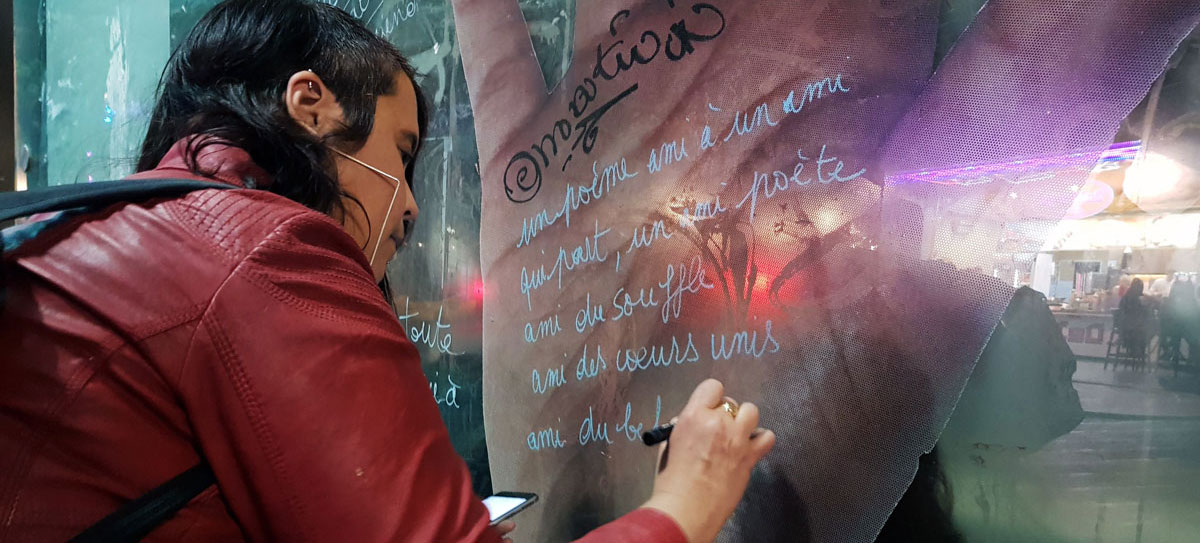 un poème ami à un ami
qui part, un ami poète
ami du souffle
ami des cœurs unis
ami du be
toute
à